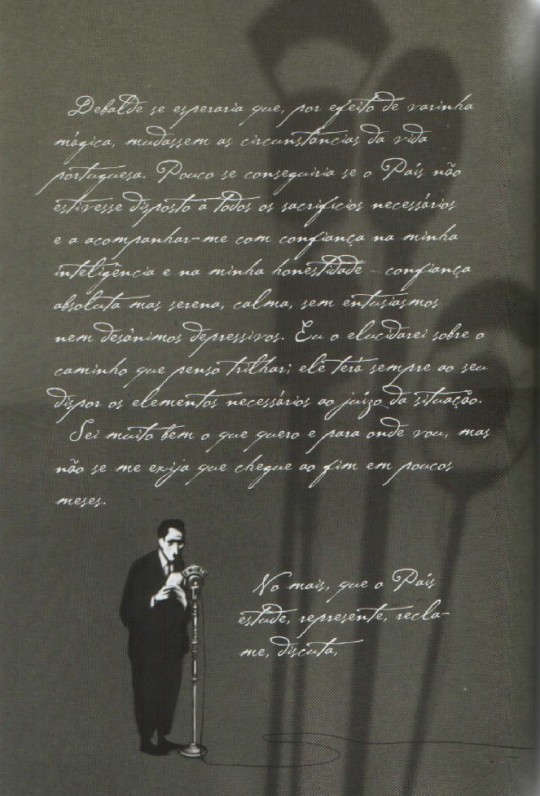 Debalde se esperaria que, por efeito de varinha
mágica, mudassem as circunstancias da vida
portuguesa. Pouco se conseguiria se o País não
estivesse disposto a todos os sacrifícios necessários
e a acompanhar-me com confiança na minha
inteligência e na minha honestidade – confiança
absoluta mas serena, calma, sem entusiasmos
nem desânimos depressivos. Eu o elucidarei sobre o
caminho que penso trilhar; ele terá sempre ao seu
dispor os elementos necessários ao juízo da situação.
Sei muito bem o que quero e para onde vou, mas
não se me exija que chegue ao fim em poucos
meses.
No mais, que o País
estude, represente, recla-
me, discuta,